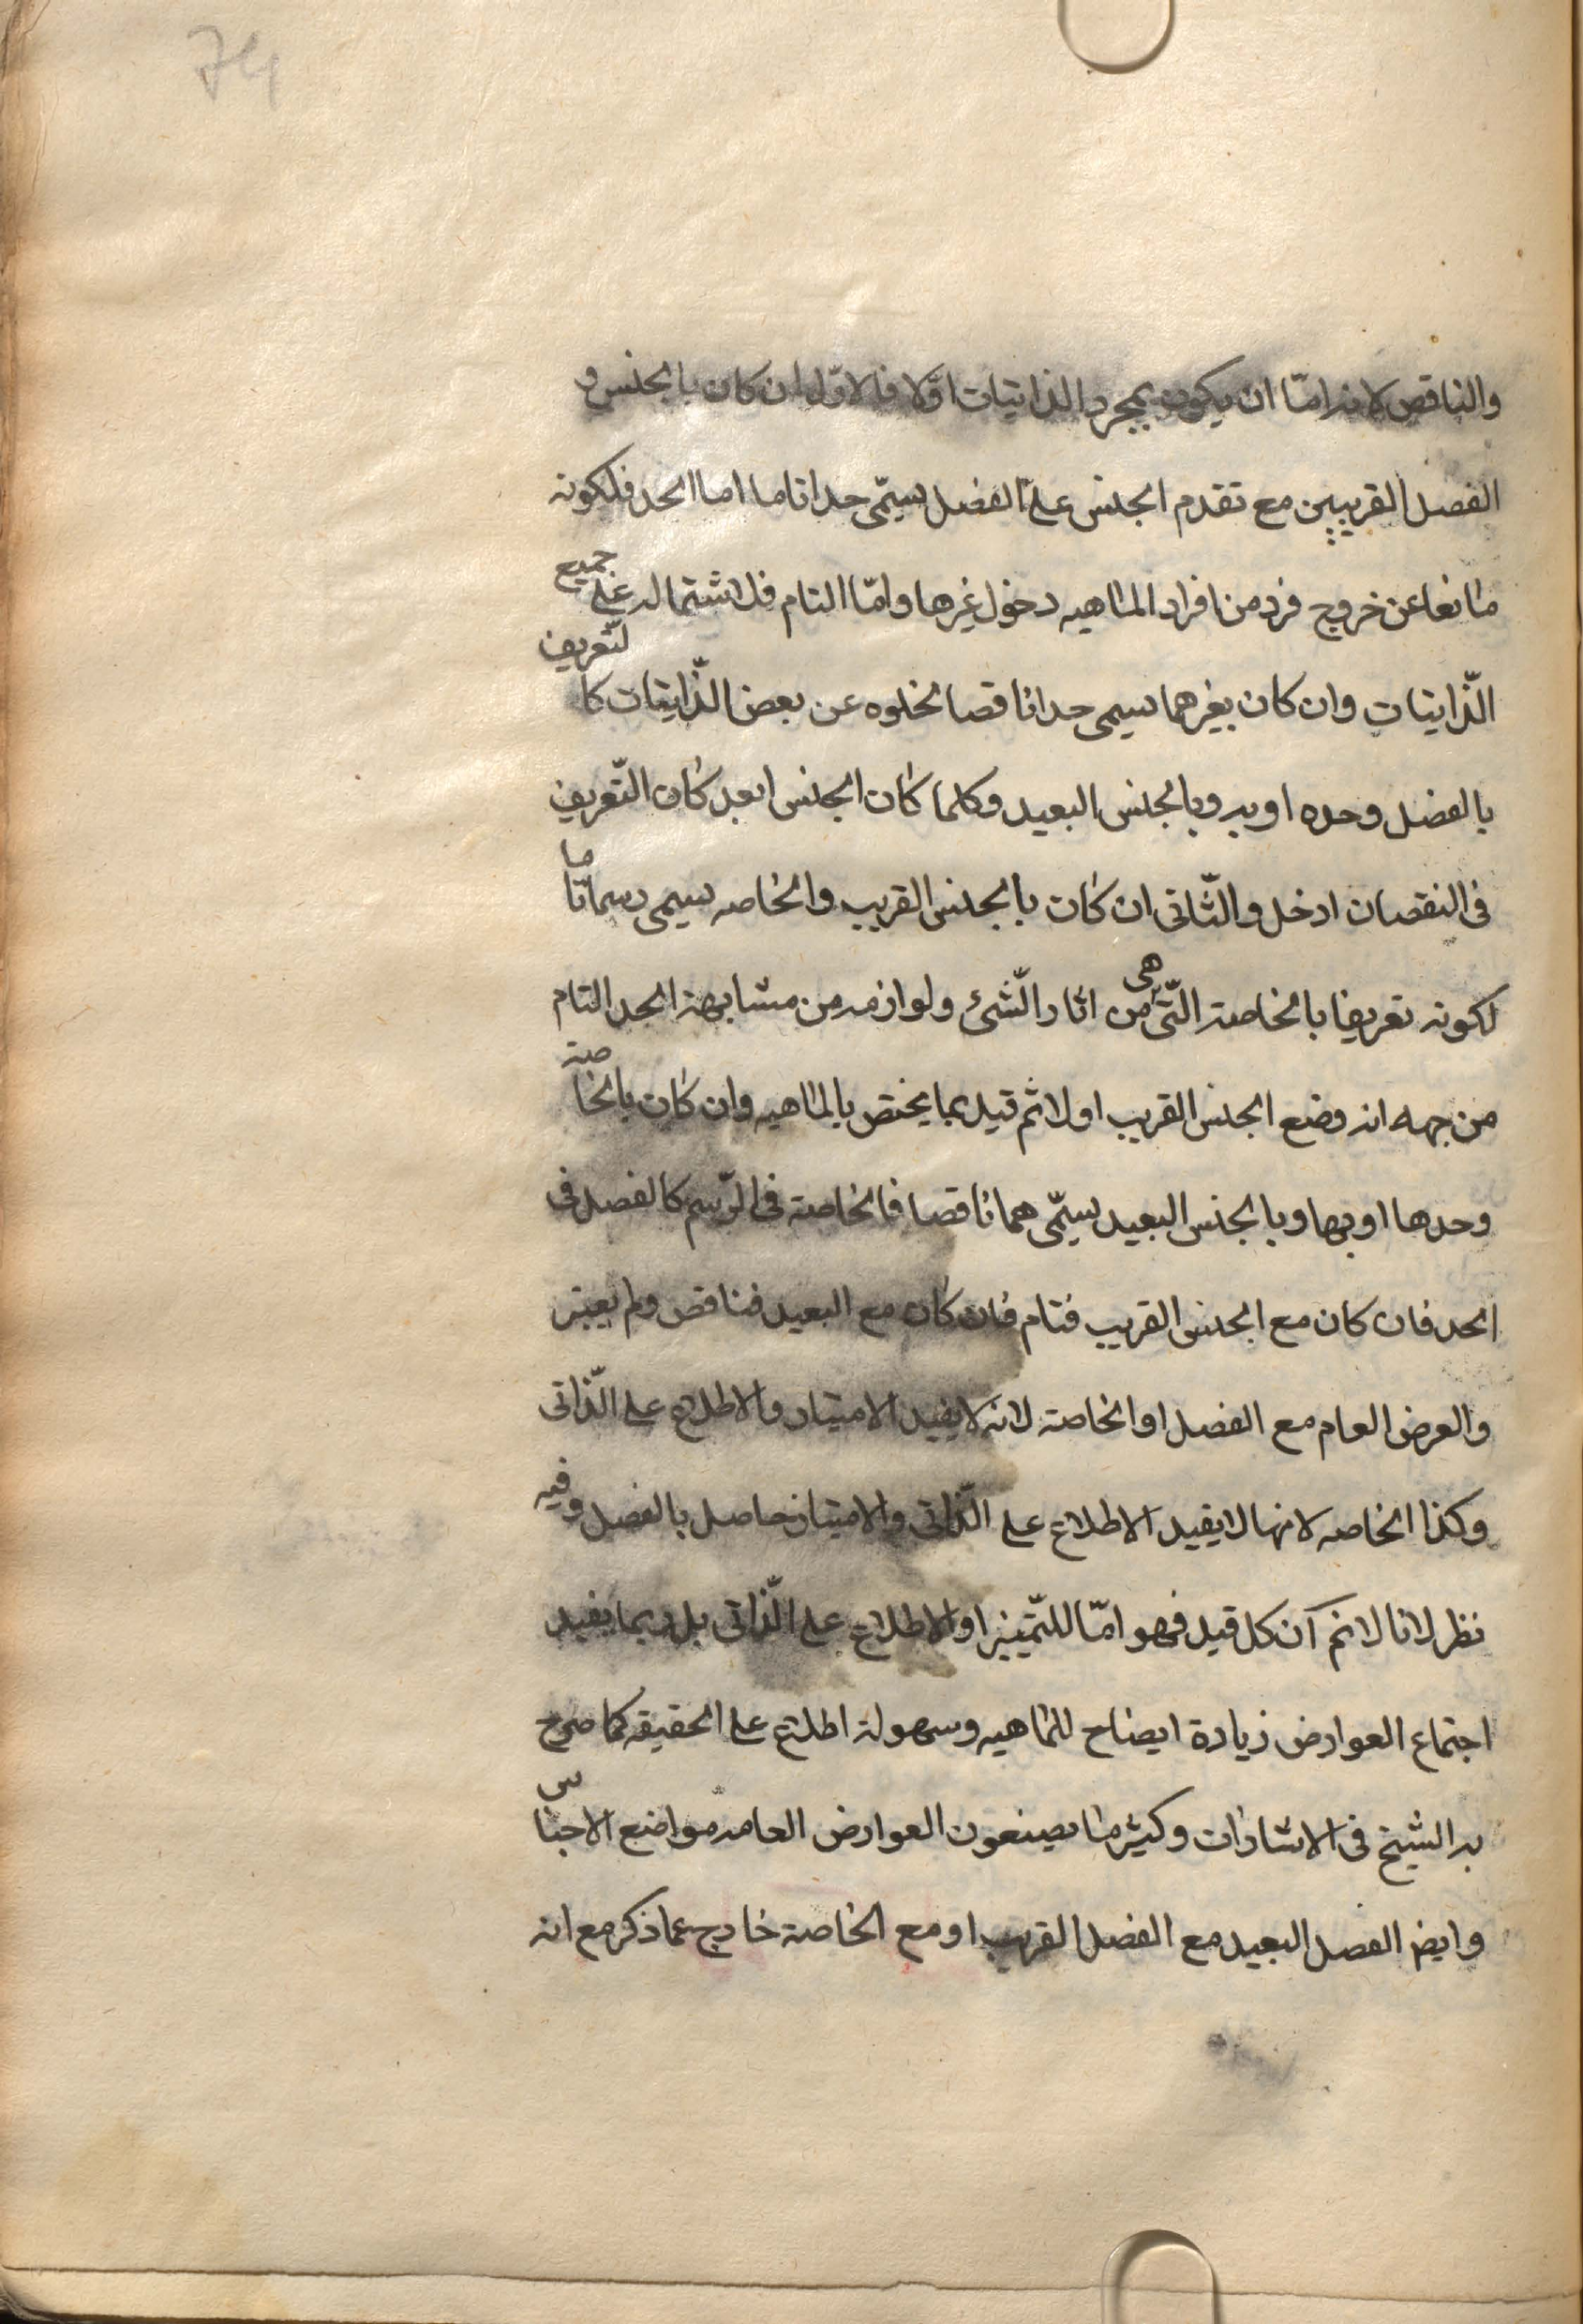 74
والناقص لانه امّا ان يكون بمجرد الذاتيات اوّلا فالاوّل ان كان بالجنس و
الفصل القريبين مع تقدم الجنس على الفصل يسمّى حدا تاما اما الحد فلكونه
مانعا عن خروج فرد من افراد الماهيه دخول غيرها وامّا التام فلاشتماله على جميع
الذّاتيات وان كان بغيرهما يسمى حدا ناقصا لخلوه عن بعض الذّاتيات كا لتّعريف
بالفصل وحده او به وبالجنس البعيد وكلما كان الجنس ابعد كان التّعريف
فى النقصان ادخل والثّانى ان كان بالجنس القريب والخاصه يسمى رسما تّا ما
لكونه تعريفا بالخاصة الّتى هى من اثار الّشئ ولوازمه من مشابهة الحد التام
من جهه انه وضع الجنس القريب اولا ثم قيد بما يختص بالماهيه وان كان بالخا صة
وحدها او بها وبالجنس البعيد يسمّى هما ناقصا فالخاصة فى الرّسم كالفصل فى
الحد فان كان مع الجنس القريب فتام فان كان مع البعيد فناقص ولم يعتبر
والعرض العام مع الفصل او الخاصة لانه لا يفيد الامتياز والاطلاع على الّذاتى
وكذا الخاصه لانها لا يفيد الاطلاع على الّذاتى والامتياز حاصل بالفصل وفيه
نظر لانا لا نم آن كل قيد فهو امّا للتّمييز او الاطلاع على الّذاتى بل ربما يفيد
اجتماع العوارض زيادة ايضاح للماهيه وسهولة اطلاع على الحقيقه كما صرح
به الشيخ فى الاشارات وكثير ما يضعون العوارض العامه مواضع الاجنا س
وايض الفصل البعيد مع الفصل القريب او مع الخاصة خارج عما ذكر مع انه